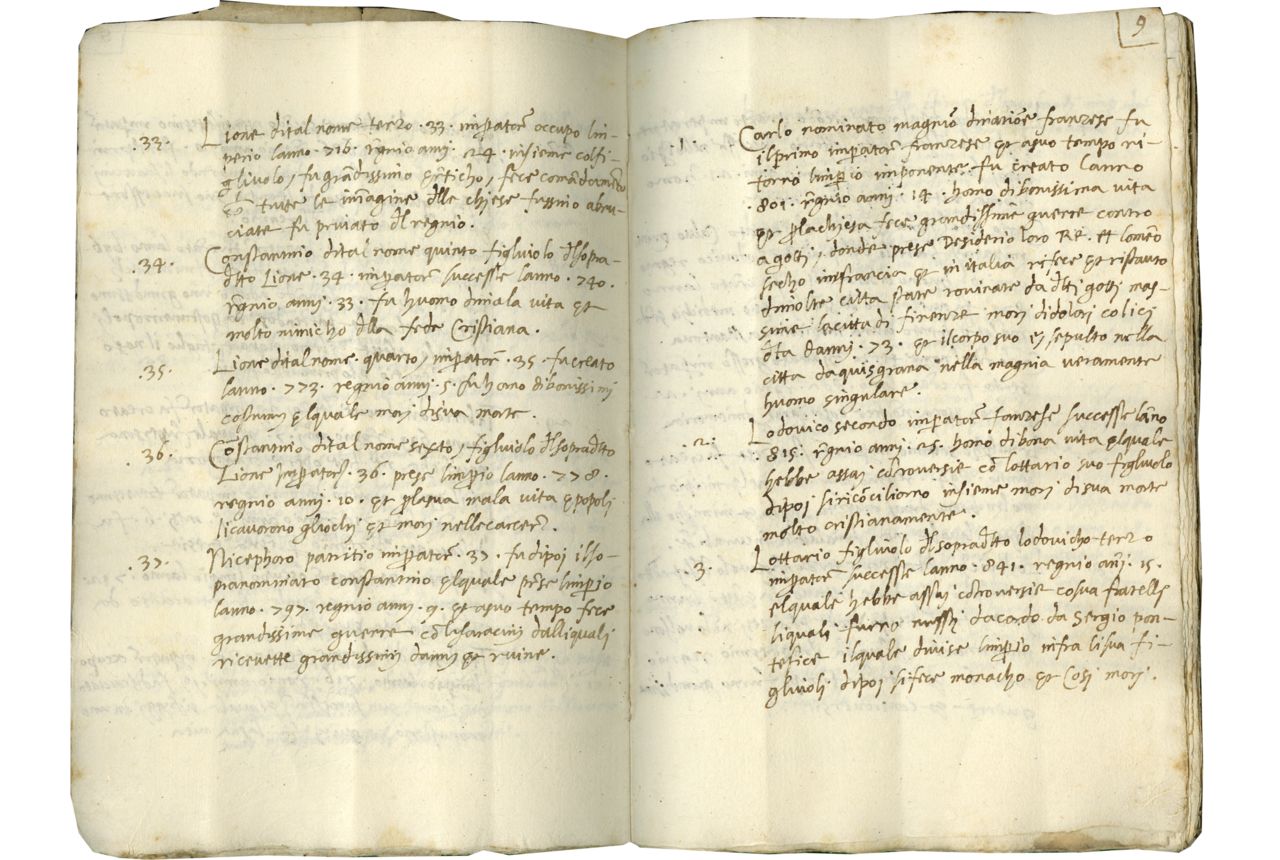 .33. Lione dital nome terzo .33. imperator occupo lim-
perio lanno .716. regnio anni .24. insieme colfi-
gliuolo, fu grandissimo ereticho, fece comandamento
che tutte le immagine delle chiese fussino abru-
ciate fu privato del regnio.
.34. Constantinio dital nome quinto figliuolo delsopra-
detto Lione .34. imperator successe lanno .740.
regnio anni .33. fu huomo dimala vita et
molto nimicho della fede Cristiana.
.35. Lione dital nome quarto, imperator .35. fu creato
lanno .773. regnio anni .5. fu homo dibonissimi
costumi elquale mori disua morte.
.36. Constantinio dital nome sexto, figliuolo delsopradetto
Lione Imperator .36. prese limperio lanno .778.
regnio anni .10. et perlasua mala vita epopoli
licavorono gliochi et mori nellecarcer.
.37. Nicephoro patritio imperator .37. fu dipoi ilso-
pranominato constantinio elquale prese limperio
lanno .797. regnio anni .9. et asuo tempo fece
grandissime guerre con lisaracini dalliquali
ricevette grandissimi danni et ruine.
9
.1. Carlo nominato magnio dinatione franzese fu
ilprimo imperator franzese et asuo tempo ri-
torno limperio imponente. fu creato lanno
.801. regnio anni .14. homo dibonissima vita
et perlachiesa fece grandissime guerre contro
agotti, donde prese Desiderio loro Re. et lomeno
secho infrancia et in italia refece et ristauro
dimolte citta state rovinate da detti gotti mas-
sime lacitta di firenze mori didolori colici
deta danni .73. et ilcorpo suo è sepulto nella
citta daquisgrana nella magnia veramente
huomo singulare.
.2. Lodovico secondo imperator franzese successe lanno
.815. regnio anni .25. homo dibona vita elquale
hebbe assai controversie con lottario suo figliuolo
dipoi siriconciliorno insieme mori disua morte
molto cristianamente.
.3. Lottario figliuolo delsopradetto lodovicho terzo
imperator successe lanno .841. regnio anni .15.
elquale hebbe assai controversie cosua fratelli
liquali furno messi dacordo da Sergio pon-
tefice ilquale divise limperio infra lisua fi-
gliuoli dipoi sifece monacho et Cosi mori.